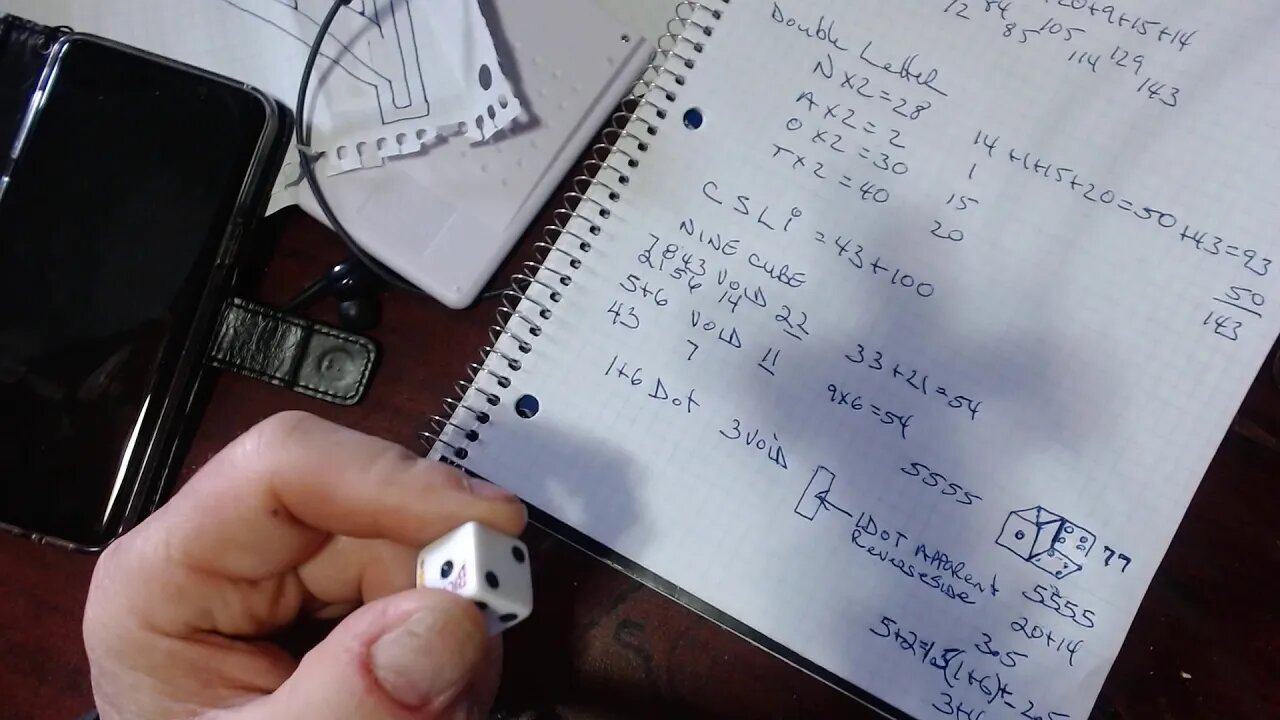 20+9+15+14
12 84 105 129
85 114 143
Double Letter
N x2 = 28
A x2 = 2
O x2 = 30
T x2 = 40
14 +1+15+20=50+43=93
1
15
20
50
143
CSLi = 43+100
NINE CUBE
7843 VOID 22
2156 14
5+6 VOID 11
43 7
33+21=54
9x6=54
1+6 Dot 3 VOID
5555
1DOT APPARENT
REVERSESIDE
77
5555
20+14
3.5